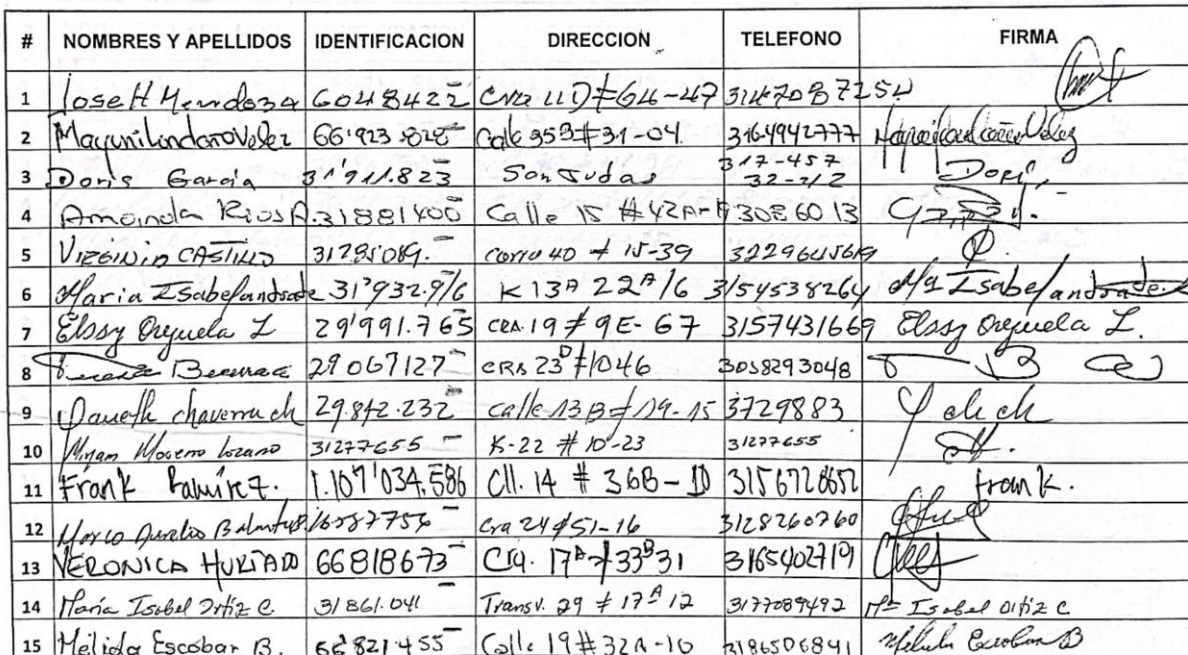 # NOMBRES Y APELLIDOS IDENTIFICACION DIRECCION TELEFONO FIRMA
1 Jose H Mendoza 6048422 Cra 11D # 64-47 3147087254
2 66'923.828 Calle 35B # 31-04 3164942777
3 Doris Garcia 31'911.823 San Judas 317-457 32-212 Doris
4 Amainda Rios A. 31881400 Calle 15 # 42A- 3086013
5 Virginia CASTILLO 31285089. 40 # 15-39
6 Maria Isabel andrade 31'932.916 K 13A 22A 16 3154538264 Ma Isabel andrade
7 Elssy Orejuela L 29'991.765 CRA 19 # 9E-67 3157431669 Elssy Orejuela L.
8 Becerra 29067127 CRA 23D # 1046 3058293048
9 chaverra ch 29.842.232 calle 13B # 19-15 3729883
10 Miryam Moreno Lozano 31277655 K-22 # 10-23 31277655
11 Frank Ramirez. 1.107'034.586 Cll. 14 # 36B-10 3156728652 frank.
12 Marco Aurelio Cra 24 # 51-16 3128260760
13 VERONICA HURTADO 66818673 Cra. 17A # 33B 31 3165402719
14 Maria Isabel Ortiz C. 31861.041 Transv. 29 # 17A 12 3177089492 Ma Isabel Ortiz C.
15 Melida Escobar B. 66'821455 Calle 19 # 32A-10 3186506841 Melida Escobar B